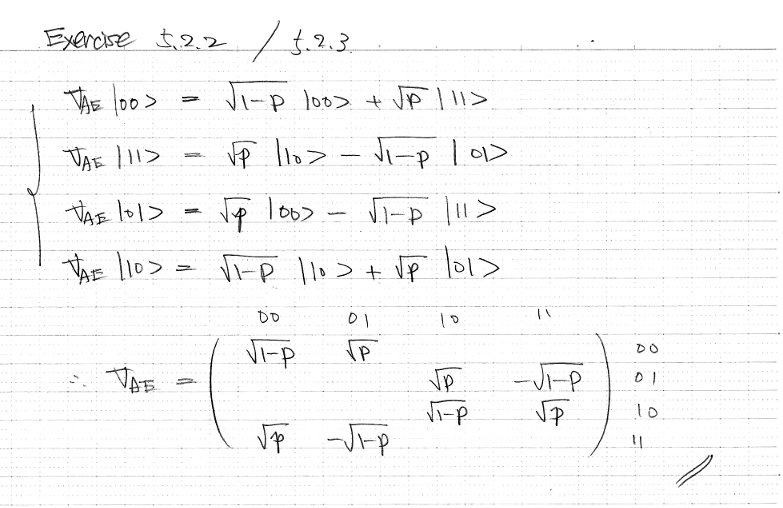 Exercise 5.2.2 / 5.2.3
V_AE |00> = √1-p |00> + √p |11>
V_AE |11> = √p |10> - √1-p |01>
V_AE |01> = √p |00> - √1-p |11>
V_AE |10> = √1-p |10> + √p |01>
00 01 10 11
√1-p √p 00
∴ V_AE = √p -√1-p 01
√1-p √p 10
√p -√1-p 11